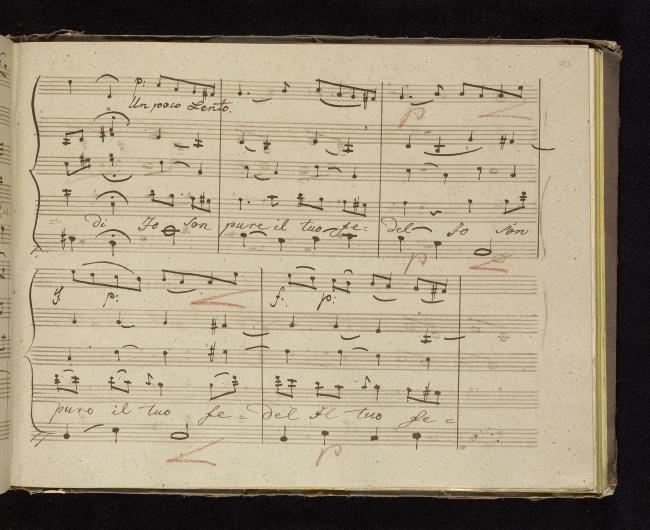 p:
Un poco Lento.
p
di Io son pure il tuo fe= del Io son
p
f. p: f. p:
puro il tuo fe= del Il tuo fe=
p